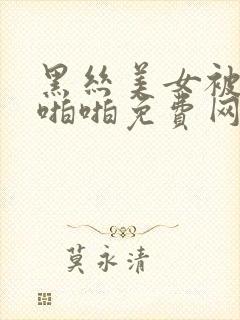 黑丝美女被
啪啪免费网
莫永清